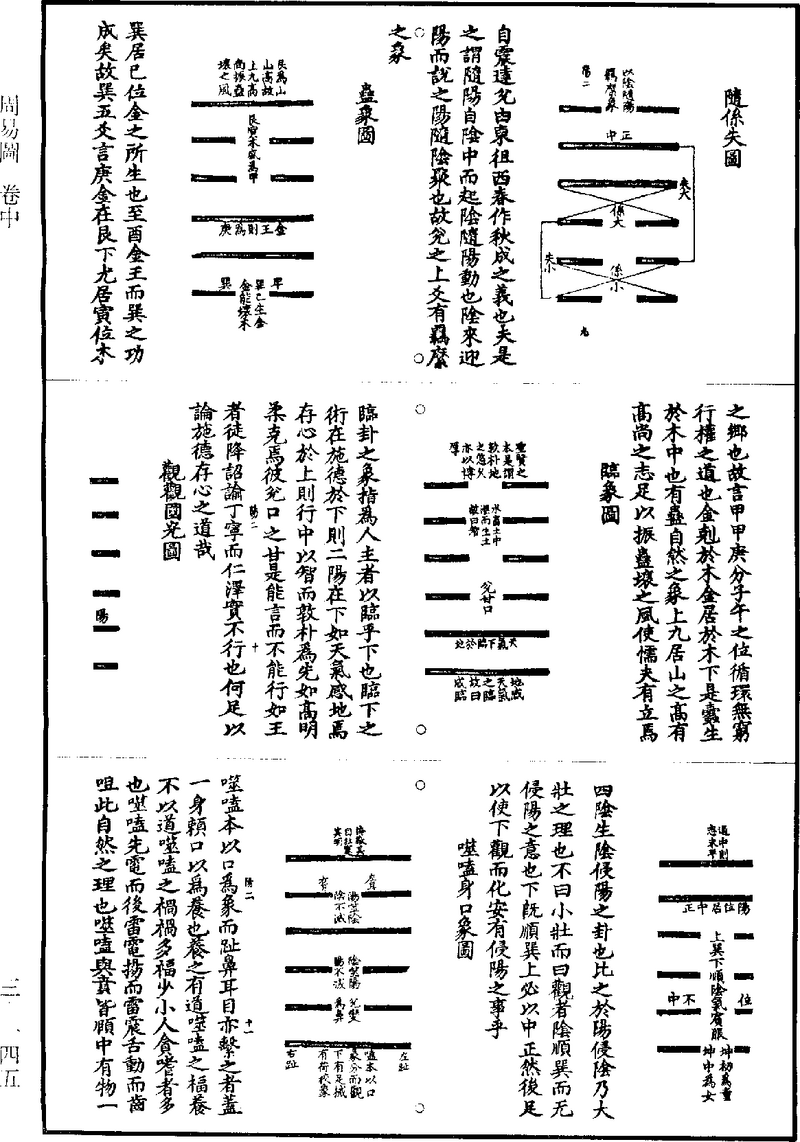 周易圖 卷中
三·一四五
隨係失圖
以陰隨陽
羈縻象
陽二
正中
失大
係大
失小
係小
自震達兌由東徂西春作秋成之義也夫是
之謂隨陽自陰中而起陰隨陽動也陰來迎
陽而說之陽隨陰聚也故兌之上爻有羈縻
之象
蠱象圖
艮為山
山高故
上九高
尚振蠱
壞之風
艮寅木盛為甲
金王則為庚
巽巳生金
金能壞木
巽居巳位金之所生也至酉金王而巽之功
成矣故巽五爻言庚金在艮下尤居寅位木
之鄉也故言甲甲庚分子午之位循環無窮
行權之道也金剋於木金居於木下是蠱生
於木中也有蠱自然之象上九居山之高有
高尚之志足以振蠱壞之風使懦夫有立焉
臨象圖
聖賢之
本是謂
敦朴地
之德久
亦以博
厚
水畜土中
澤而生土
故曰智
兌甘口
天氣下臨於地
地感
天氣
之臨
故曰
咸臨
臨卦之象指為人主者以臨乎下也臨下之
術在施德於下則二陽在下如天氣感地焉
存心於上則行中以智而敦朴為先如高明
柔克焉彼兌口之甘是能言而不能行如王
者徒降詔諭丁寧而仁澤實不行也何足以
論施德存心之道哉
陽二
十
觀觀國光圖
陽
過中則
志未平
陽位居中正
上巽下順陰氣賓服
位不中
坤初為童
坤中為女
四陰生陰侵陽之卦也比之於陽侵陰乃大
壯之理也不曰小壯而曰觀者陰順巽而无
侵陽之意也下既順巽上必以中正然後足
以使下觀而化安有侵陽之事乎
噬嗑身口象圖
耳
陽噬陰
陰不滅
陰噬陽
陽不滅
兌變
為鼻
左趾
嗑本以口
象分而觀
下有足械
有荷校象
右趾
噬嗑本以口為象而趾鼻耳目亦繫之者蓋
一身賴口以為養也養之有道噬嗑之福養
不以道噬嗑之禍禍多福少小人貪嗜者多
也噬嗑先電而後雷電揚而雷震舌動而齒
咀此自然之理也噬嗑與賁皆頤中有物一
陽二
十一